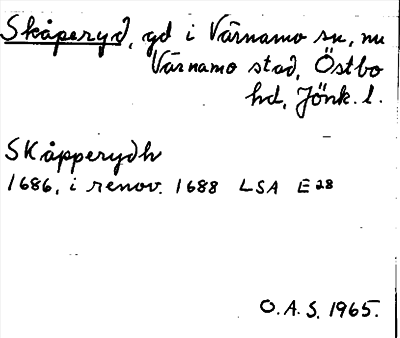 Skåperyd, gd i Värnamo sn, nu
Värnamo stad, Östbo
hd, Jönk. l.
Skåpperydh
1686, i renov. 1688 LSA E 28
O.A.S. 1965.